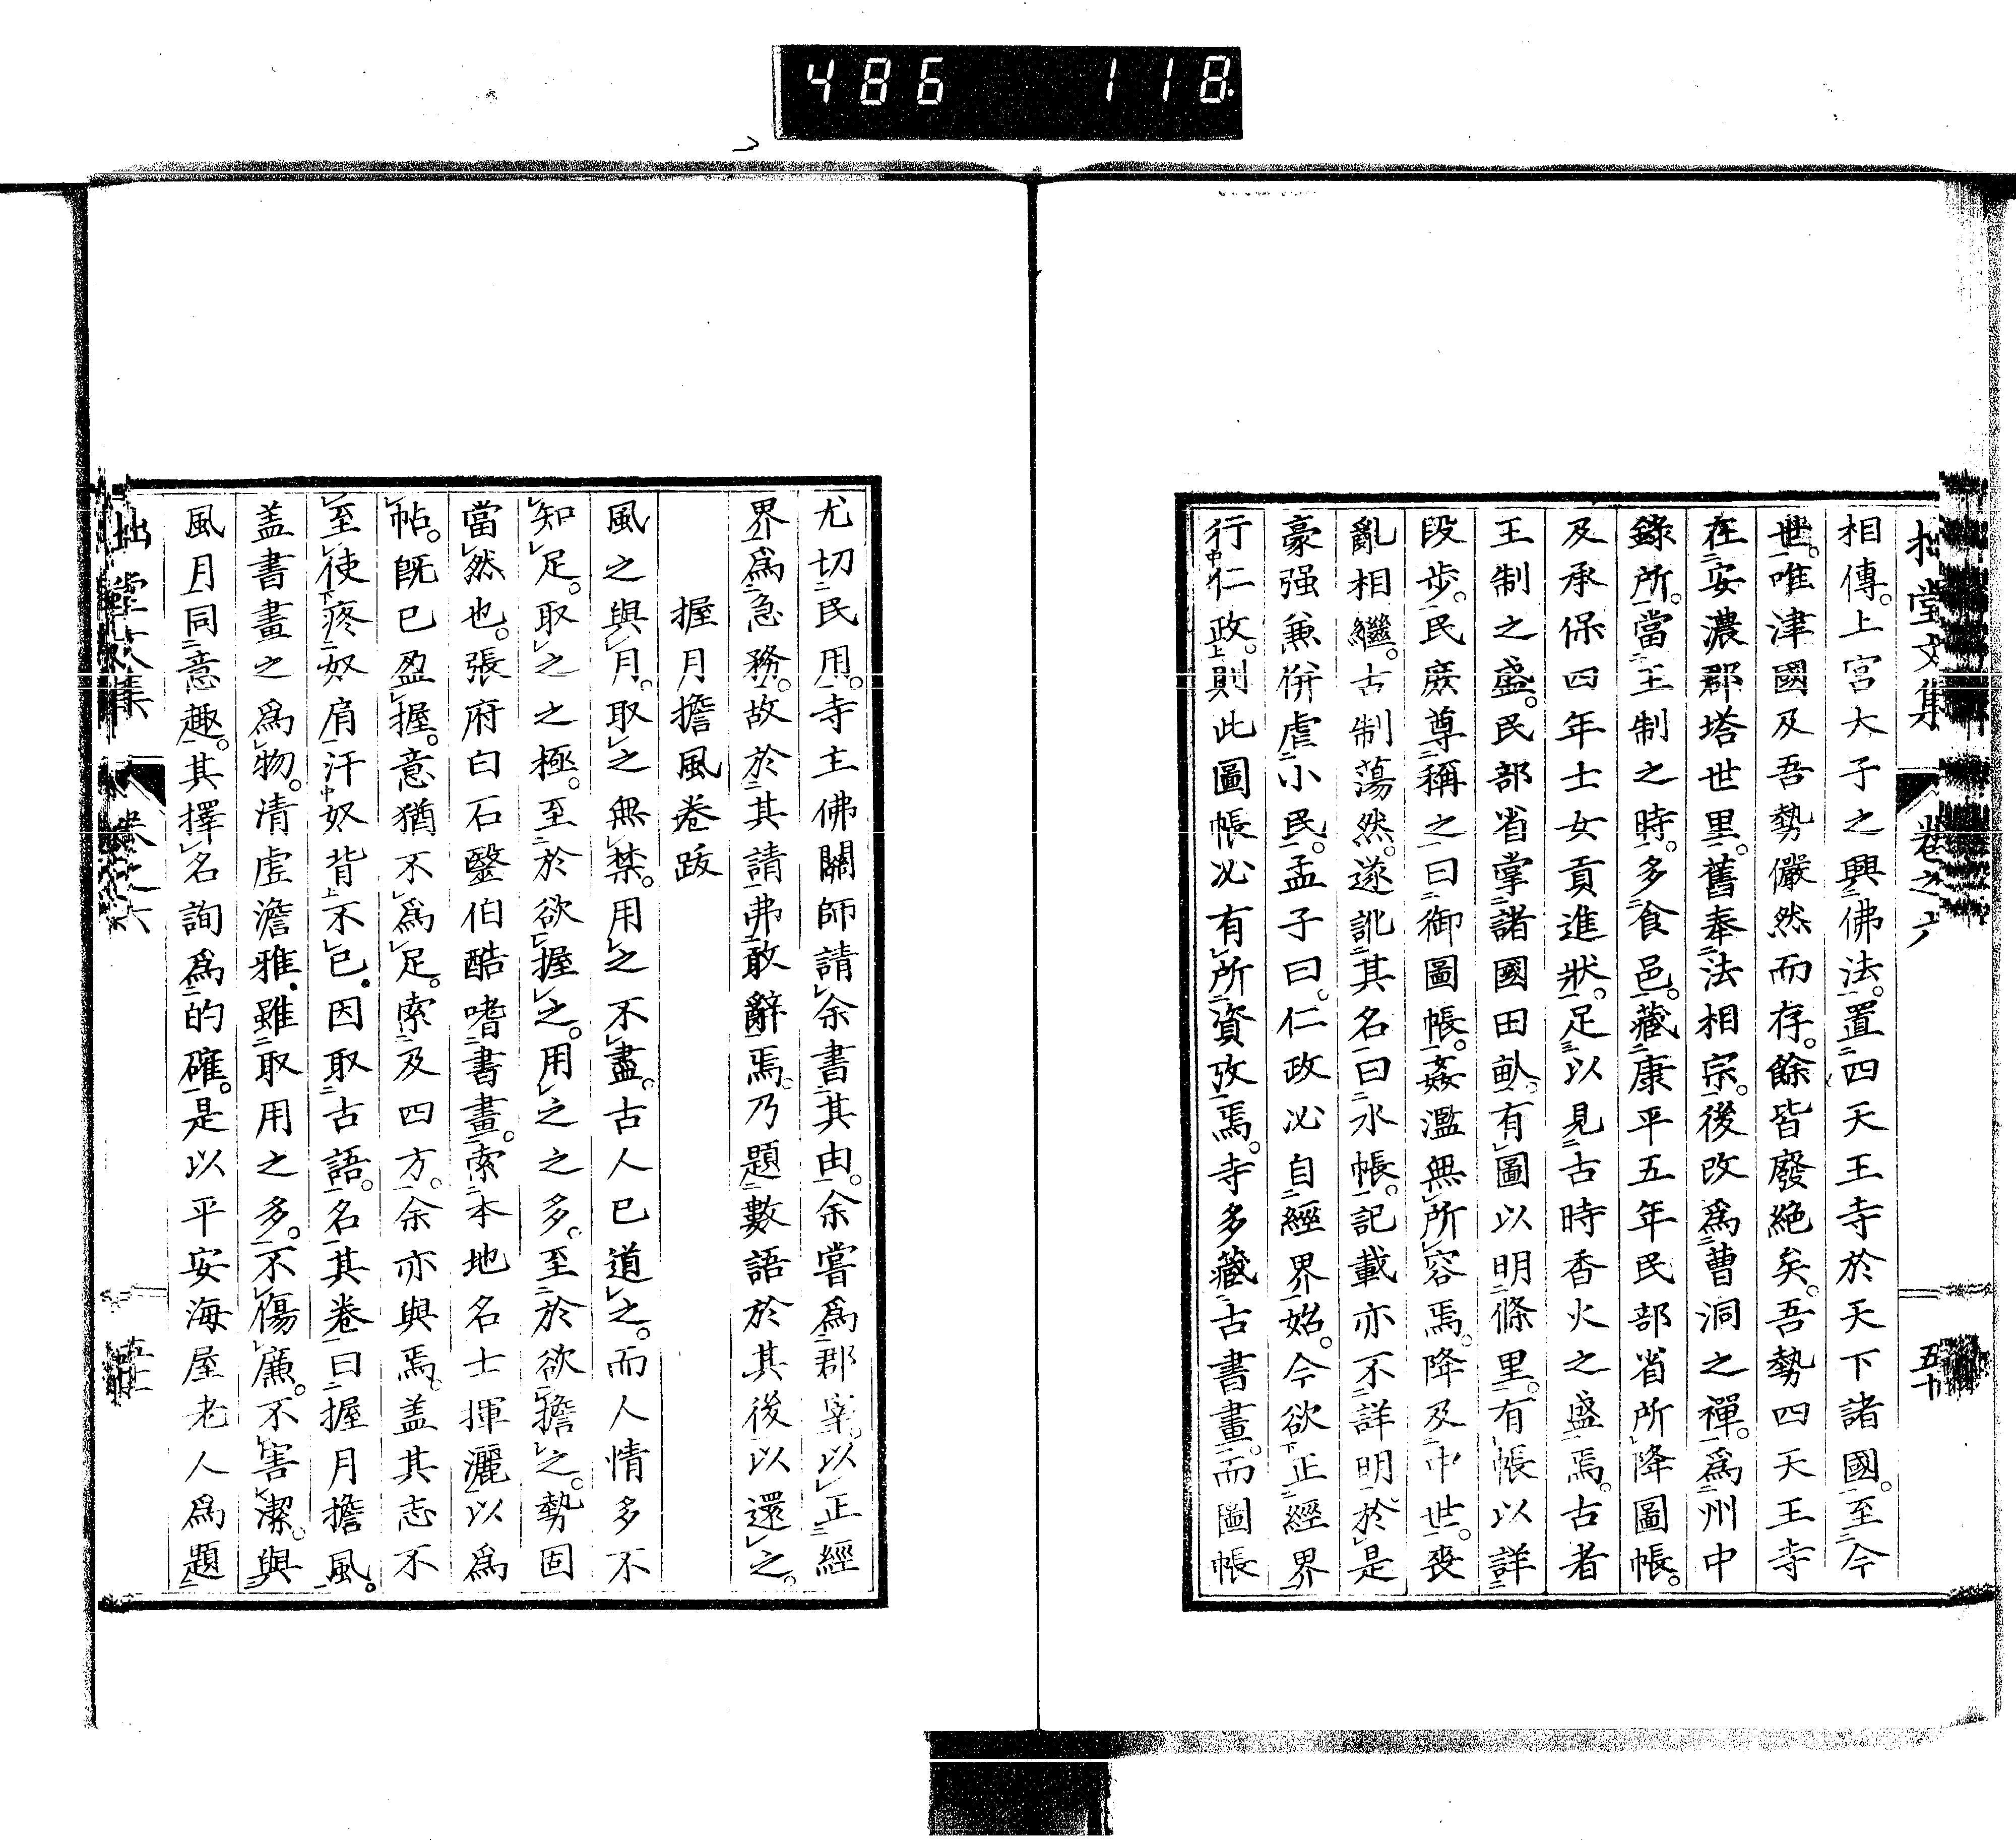 486 118
拙堂文集 卷之六 五十
相傳。上宮太子之興佛法。置四天王寺於天下諸國。至今
世。唯津國及吾勢儼然而存。餘皆廢絶矣。吾勢四天王寺
在安濃郡塔世里。舊奉法相宗。後改爲曹洞之禪。爲州中
錄所。當王制之時。多食邑。藏康平五年民部省所降圖帳。
及承保四年士女貢進狀。足以見古時香火之盛焉。古者
王制之盛。民部省掌諸國田畝。有圖以明條里。有帳以詳
段歩。民庶尊稱之曰御圖帳。姦濫無所容焉。降及中世。喪
亂相繼。古制蕩然。遂訛其名曰水帳。記載亦不詳明。於是
豪强兼併虐小民。孟子曰。仁政必自經界始。今欲正經界
行仁政。則此圖帳必有所資攷焉。寺多藏古書畫。而圖帳
尤切民用。寺主佛關師請余書其由。余嘗爲郡宰。以正經
界爲急務。故於其請弗敢辭焉。乃題數語於其後以還之。
握月擔風卷跋
風之與月。取之無禁。用之不盡。古人已道之。而人情多不
知足。取之之極。至於欲握之。用之之多。至於欲擔之。勢固
當然也。張府白石鑒伯酷嗜書畫。索本地名士揮灑以爲
帖。既已盈握。意猶不爲足。索及四方。余亦與焉。盖其志不
至使疼奴肩汗奴背不已。因取古語。名其卷曰握月擔風。
盖書畫之爲物。清虛澹雅。雖取用之多。不傷廉。不害潔。與
風月同意趣。其擇名詢爲的確。是以平安海屋老人爲題
拙堂文集 卷之六 五十